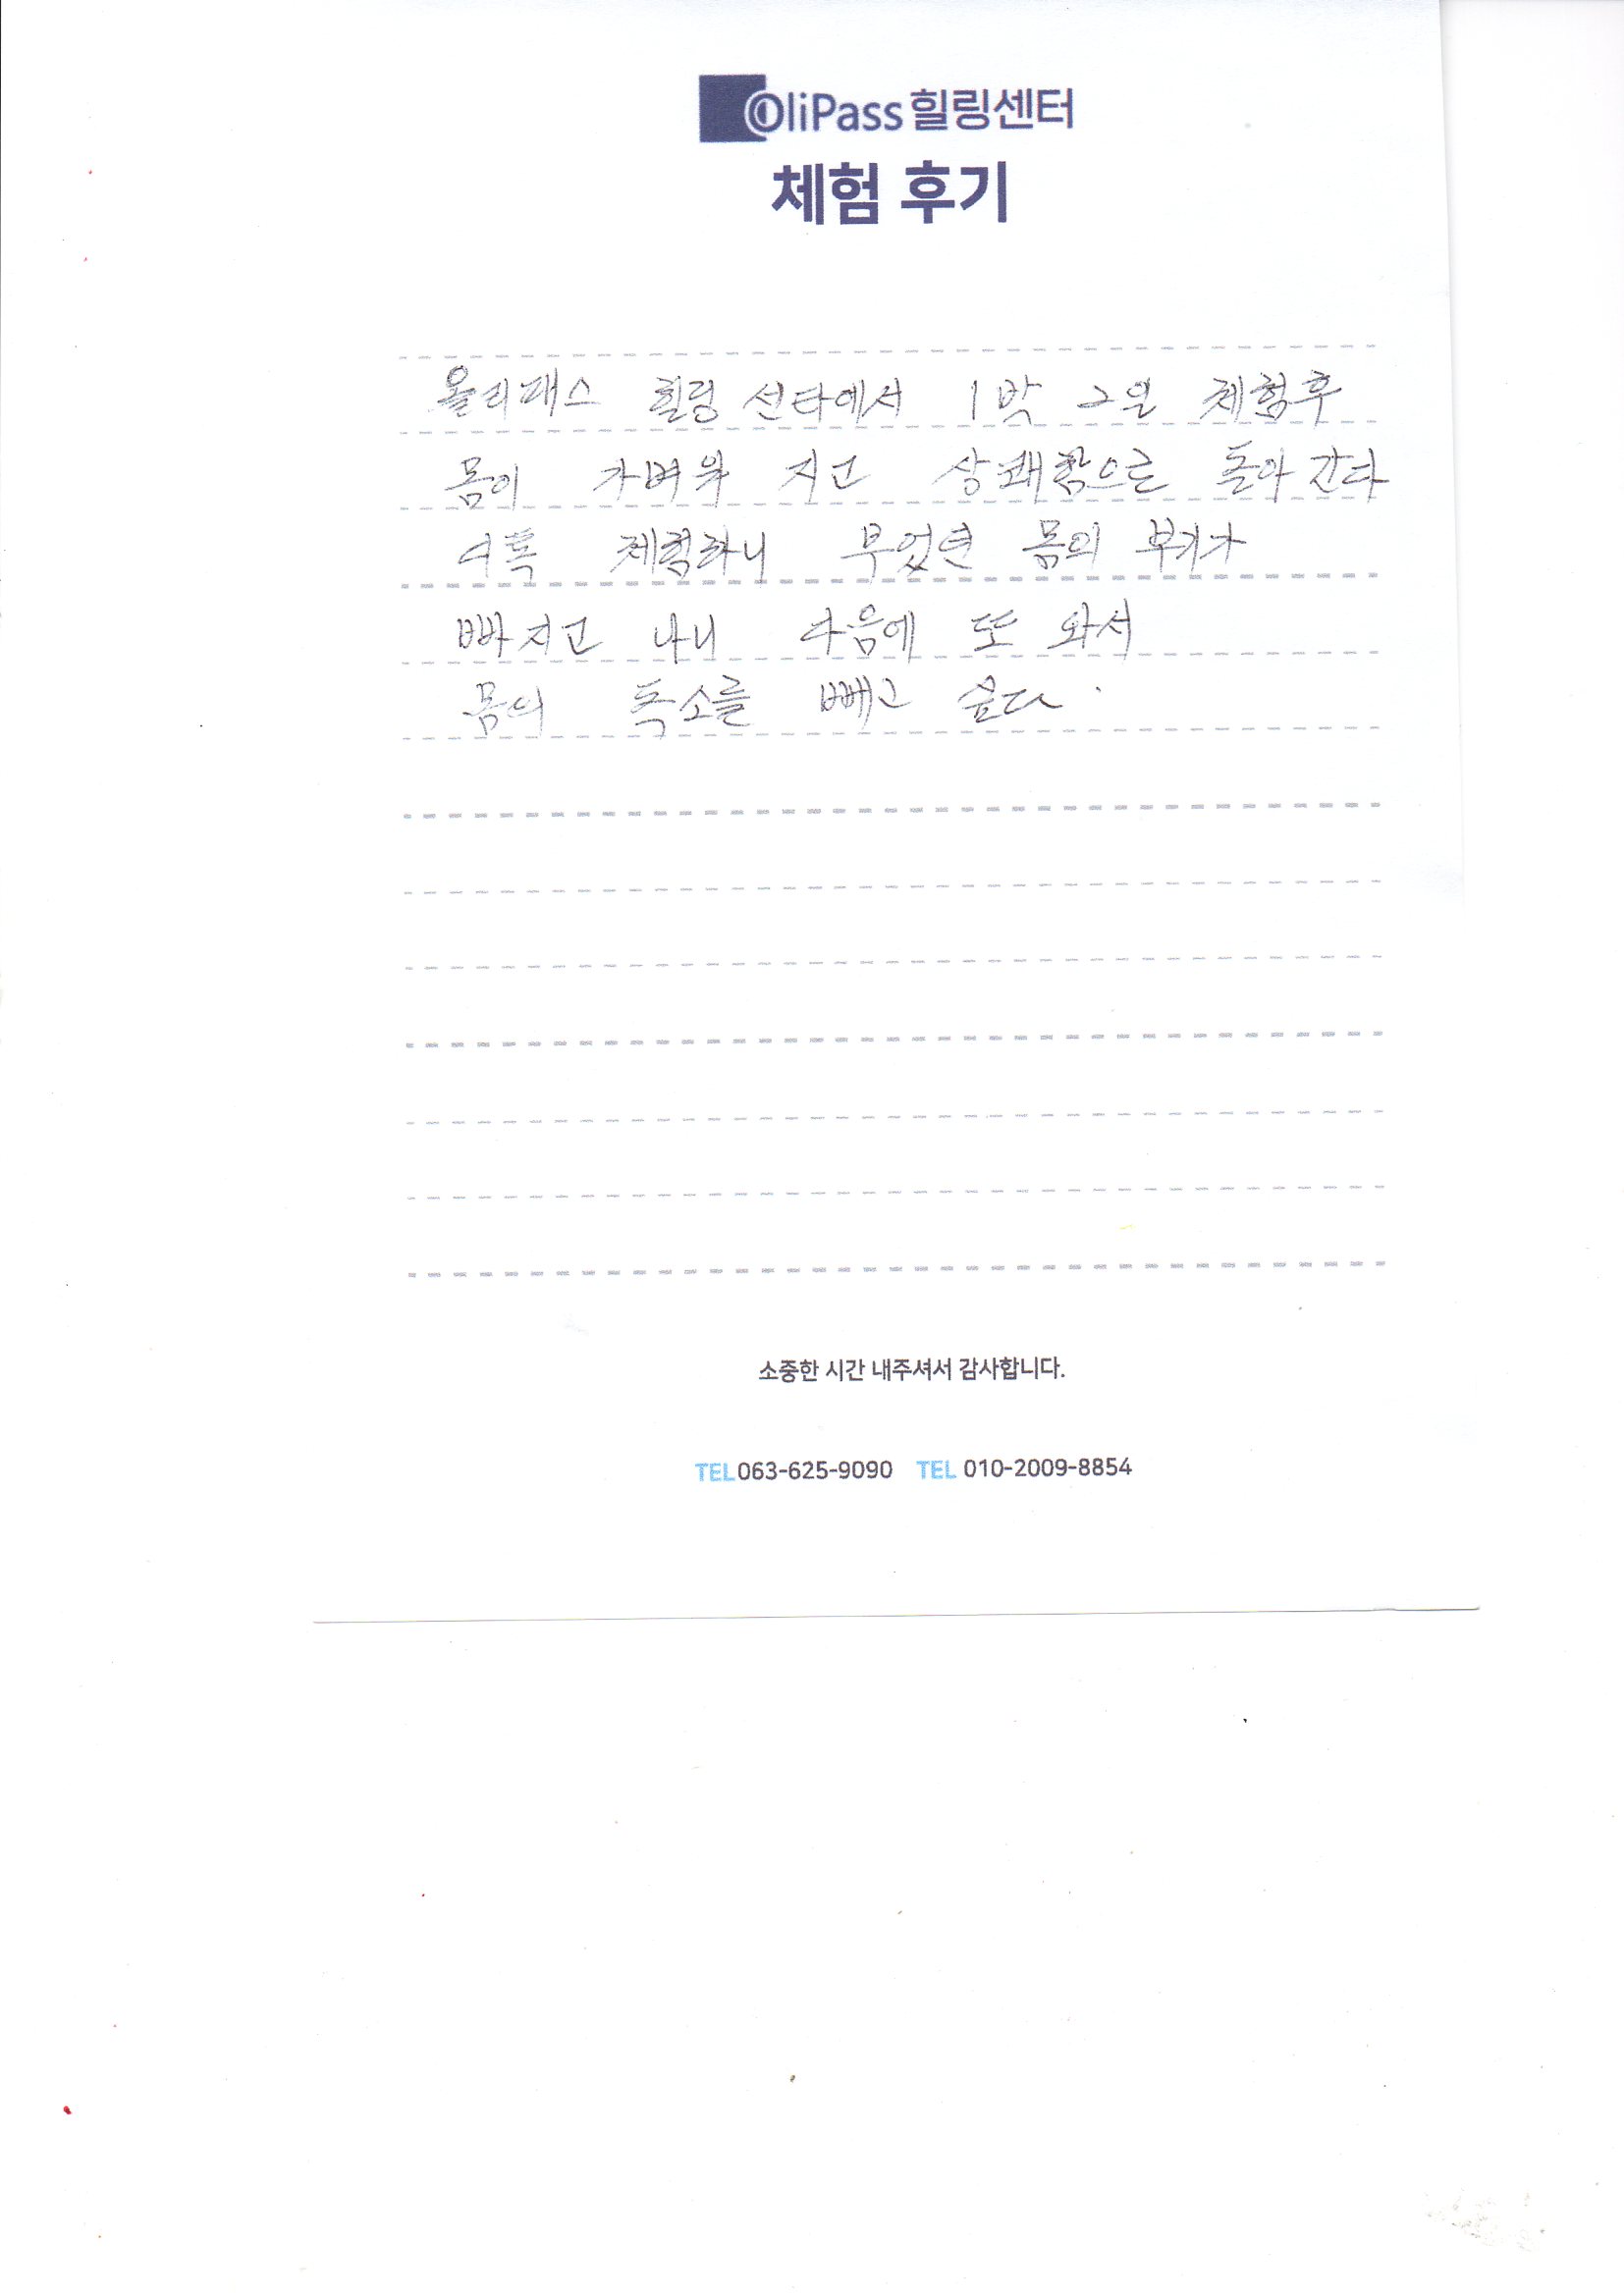 OliPass 힐링센터
체험 후기
올리패스 힐링 선타에서 1박 2일 체험후
몸이 가벼워 지고 상쾌함으론 돌아 간다
체험하니 부었던 몸의 부기가
빠지고 나니 다음에 또 와서
몸의 독소를 빼고 싶다.
소중한 시간 내주셔서 감사합니다.
TEL 063-625-9090 TEL 010-2009-8854